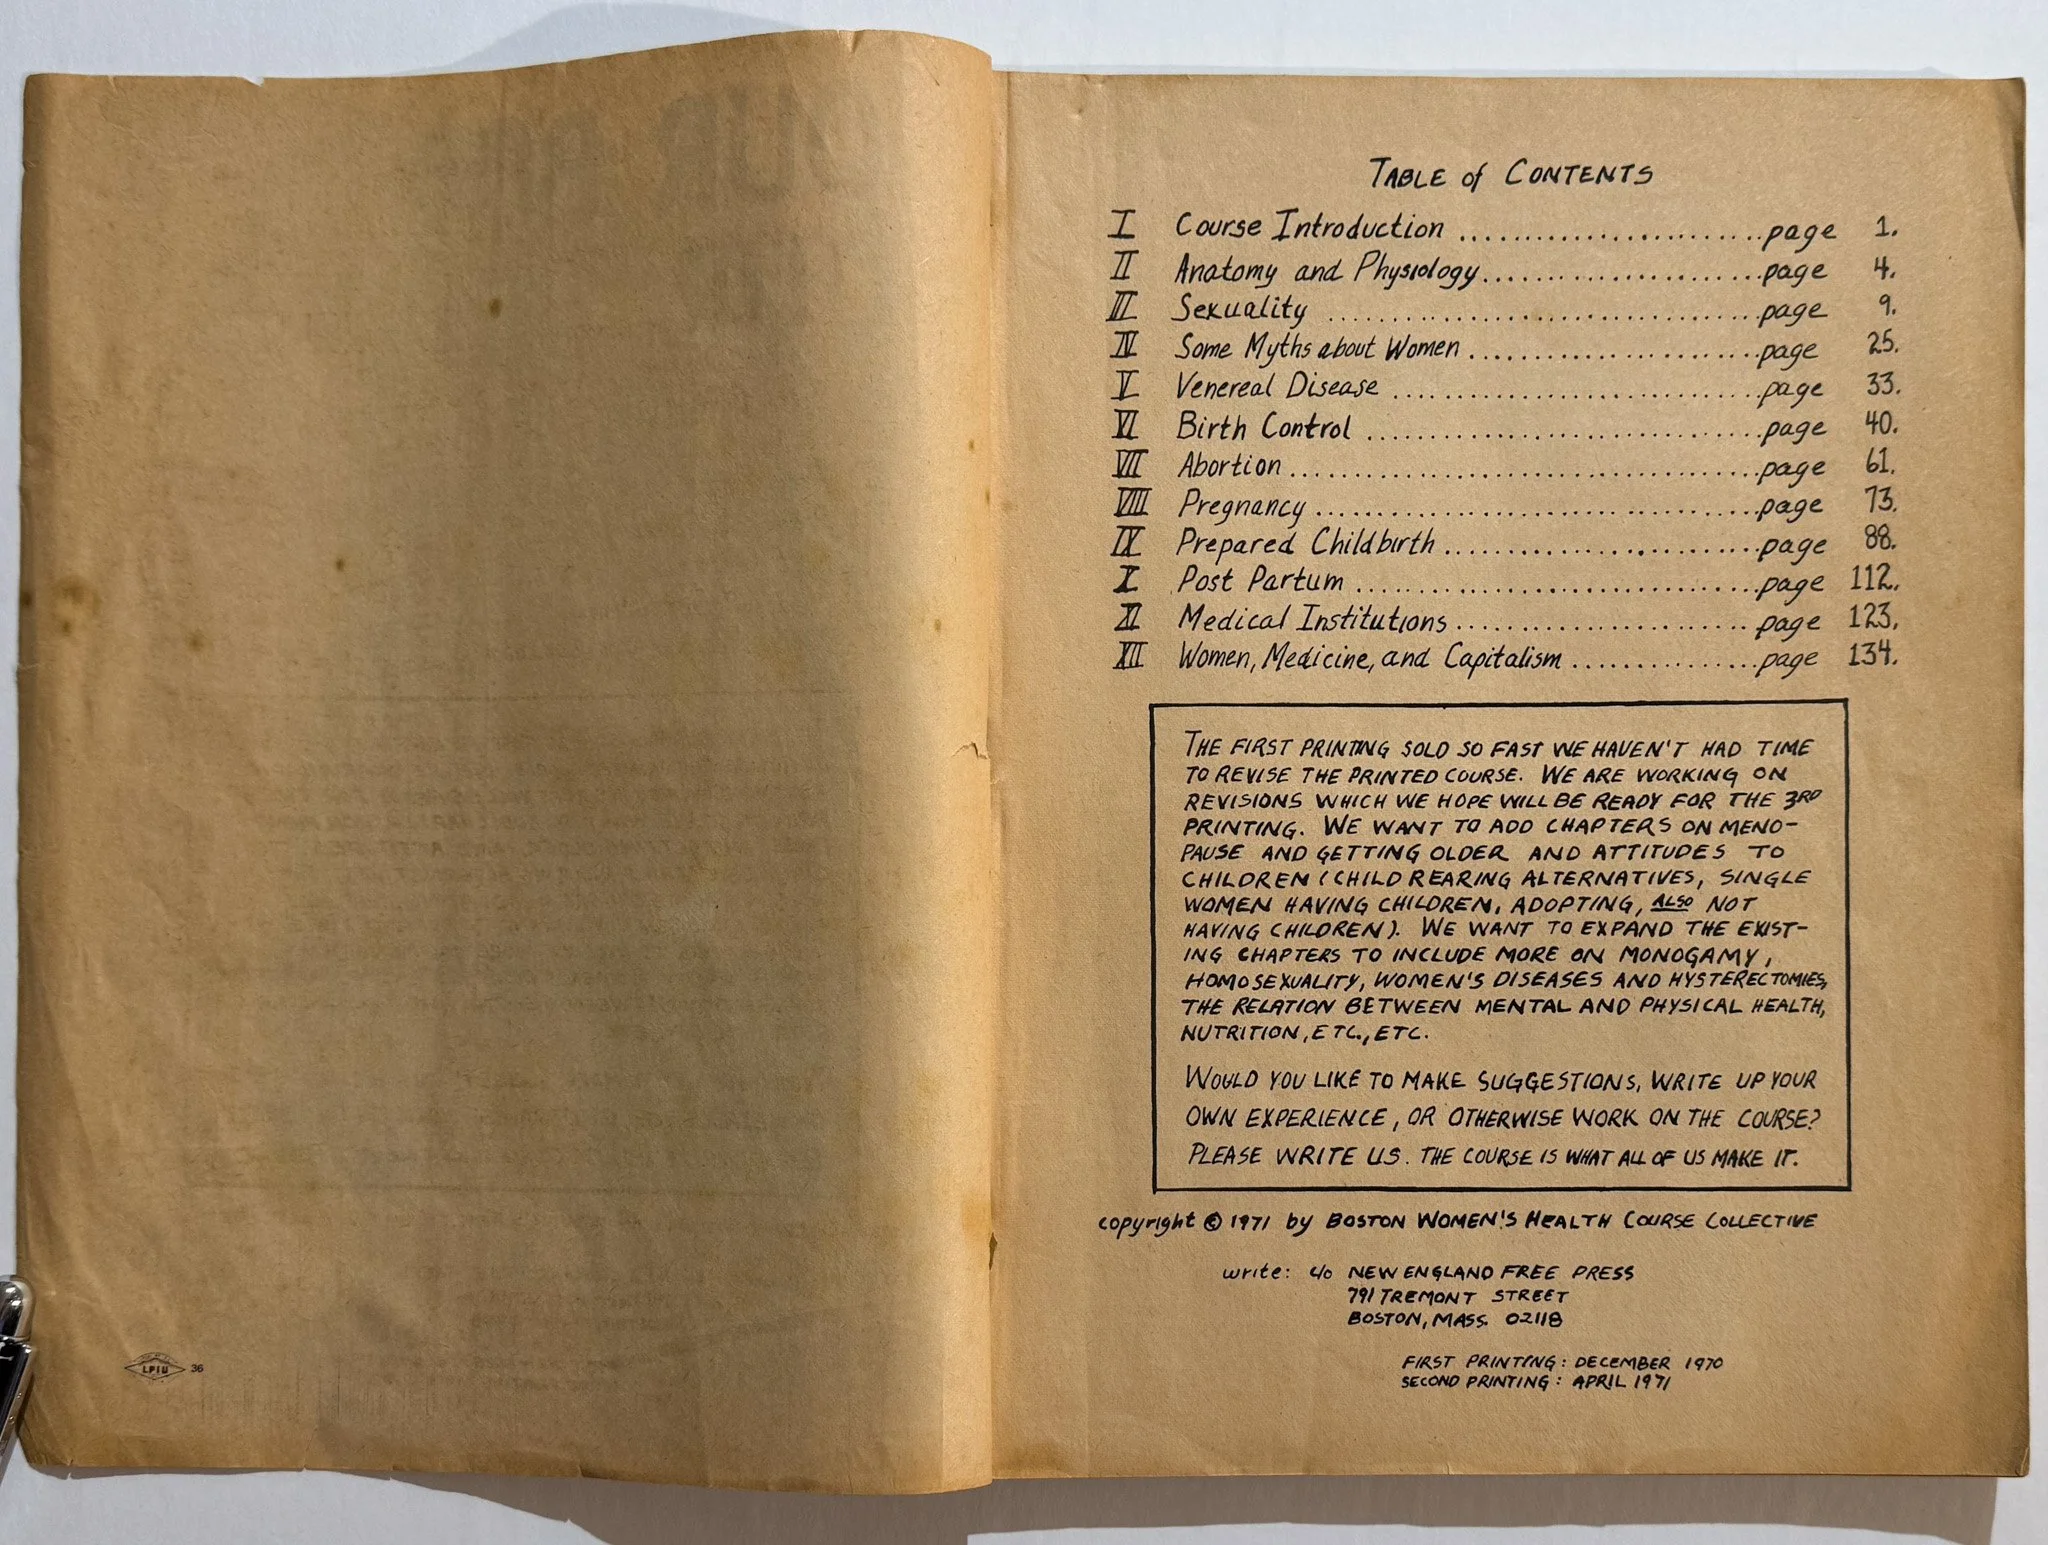 LPIU 36
TABLE of CONTENTS
I Course Introduction ........................ page 1.
II Anatomy and Physiology ...................... page 4.
III Sexuality .................................. page 9.
IV Some Myths about Women ....................... page 25.
V Venereal Disease ............................. page 33.
VI Birth Control ............................... page 40.
VII Abortion ..................................... page 61.
VIII Pregnancy ................................... page 73.
IX Prepared Childbirth ......................... page 88.
X Post Partum ................................ page 112.
XI Medical Institutions ....................... page 123.
XII Women, Medicine, and Capitalism ............... page 134.
THE FIRST PRINTING SOLD SO FAST WE HAVEN'T HAD TIME
TO REVISE THE PRINTED COURSE. WE ARE WORKING ON
REVISIONS WHICH WE HOPE WILL BE READY FOR THE 3RD
PRINTING. WE WANT TO ADD CHAPTERS ON MENO-
PAUSE AND GETTING OLDER AND ATTITUDES TO
CHILDREN (CHILD REARING ALTERNATIVES, SINGLE
WOMEN HAVING CHILDREN, ADOPTING, ALSO NOT
HAVING CHILDREN). WE WANT TO EXPAND THE EXIST-
ING CHAPTERS TO INCLUDE MORE ON MONOGAMY,
HOMOSEXUALITY, WOMEN'S DISEASES AND HYSTERECTOMIES,
THE RELATION BETWEEN MENTAL AND PHYSICAL HEALTH,
NUTRITION, ETC., ETC.
WOULD YOU LIKE TO MAKE SUGGESTIONS, WRITE UP YOUR
OWN EXPERIENCE, OR OTHERWISE WORK ON THE COURSE?
PLEASE WRITE US. THE COURSE IS WHAT ALL OF US MAKE IT.
copyright © 1971 by BOSTON WOMEN'S HEALTH COURSE COLLECTIVE
write: c/o NEW ENGLAND FREE PRESS
791 TREMONT STREET
BOSTON, MASS. 02118
FIRST PRINTING: DECEMBER 1970
SECOND PRINTING: APRIL 1971